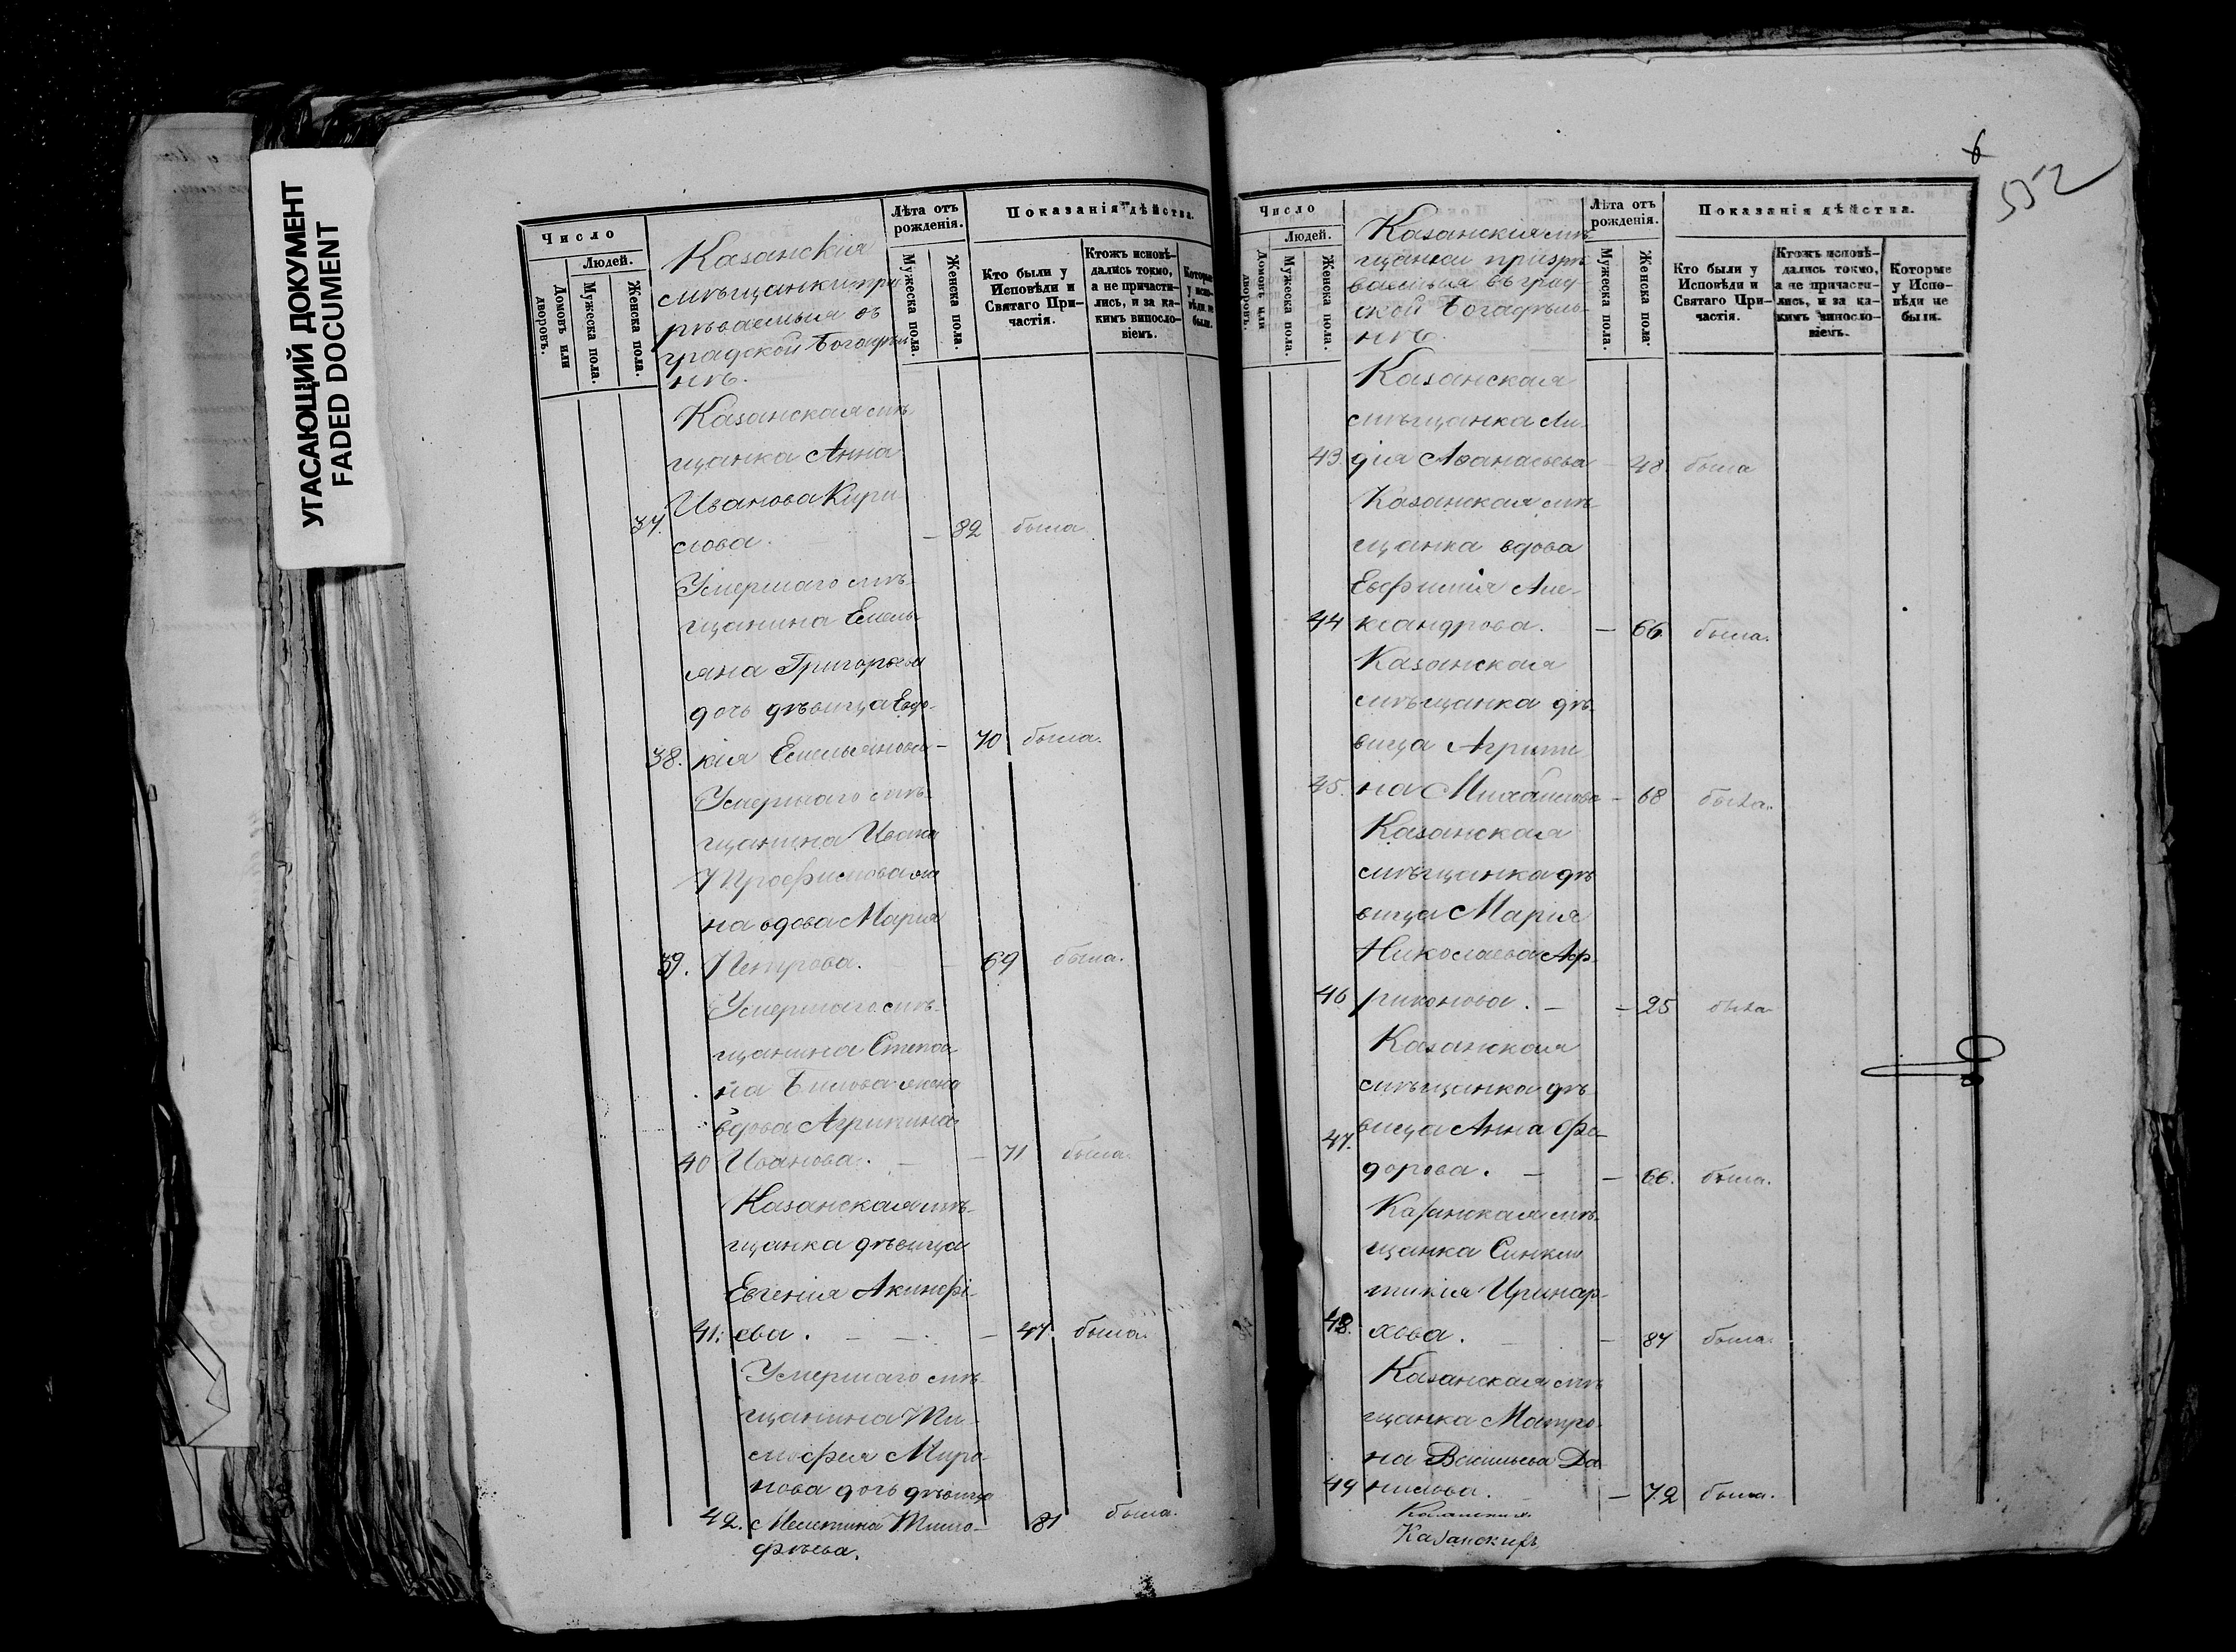 УГАСАЮЩИЙ ДОКУМЕНТ
FADED DOCUMENT
Число
Людей.
Домовъ или дворовъ.
Мужеска пола.
Женска пола.
Казанскія
мѣщанки при
зрѣваемыя въ
градской Богадѣль
нѣ.
Лѣта отъ
рожденія.
Мужеска пола.
Женска пола.
Показанія дѣйства.
Кто были у
Исповѣди и
Святаго При-
частія.
Ктожъ исповѣ-
дались токмо,
а не причасти-
лись, и за ка-
кимъ винословіемъ.
Которые
у испо-
вѣди не
были.
Казанская мѣ-
щанка Анна
Иванова Кири
37. лова. — 82 была
Умершаго мѣ-
щанина Емель
яна Григорьева
дочь дѣвица Евдо-
38. кія Емельянова — 70 была.
Умершаго мѣ-
щанина Ивана
Трофимова же
на вдова Марія
39. Петрова. — 69 была.
Умершаго мѣ-
щанина Степа
на жена
вдова Агрипина
40 Иванова. — — 71 была.
Казанская мѣ-
щанка дѣвица
Евгенія Акинфі-
41. ева. — — — 47. была.
Умершаго мѣ-
щанина Ти-
мофея Миро
нова дочь дѣвица
42. Тимо- 81 была.
фѣева.
6
552
Число
Людей.
Домовъ или дворовъ.
Мужеска пола.
Женска пола.
Казанскія мѣ
щанки призрѣ
ваемыя въ град-
ской Богадѣль-
нѣ.
Лѣта отъ
рожденія.
Мужеска пола.
Женска пола.
Показанія дѣйства.
Кто были у
Исповѣди и
Святаго При-
частія.
Ктожъ исповѣ-
дались токмо,
а не причасти-
лись, и за ка-
кимъ винословіемъ.
Которые
у Испо-
вѣди не
были.
Казанская
мѣщанка Ли-
43. дія Аѳанасьева — 48. была
Казанская мѣ-
щанка вдова
Евфимія Але-
44 ксандрова. — 66. была.
Казанская
мѣщанка дѣ-
вица Агрипи
45. на Михайлова — 68 была.
Казанская
мѣщанка дѣ
вица Марія
Николаева Ан-
46 — — 25 была
Казанская
мѣщанка дѣ-
вица Анна Фе-
47. дорова. — — 66. была.
Казанская мѣ-
щанка Синкли
тикія Иринар-
48. хова. — 87 была.
Казанская мѣ
щанка Матро-
на Васильева Да
49 нилова. — 72 была.
Казанских